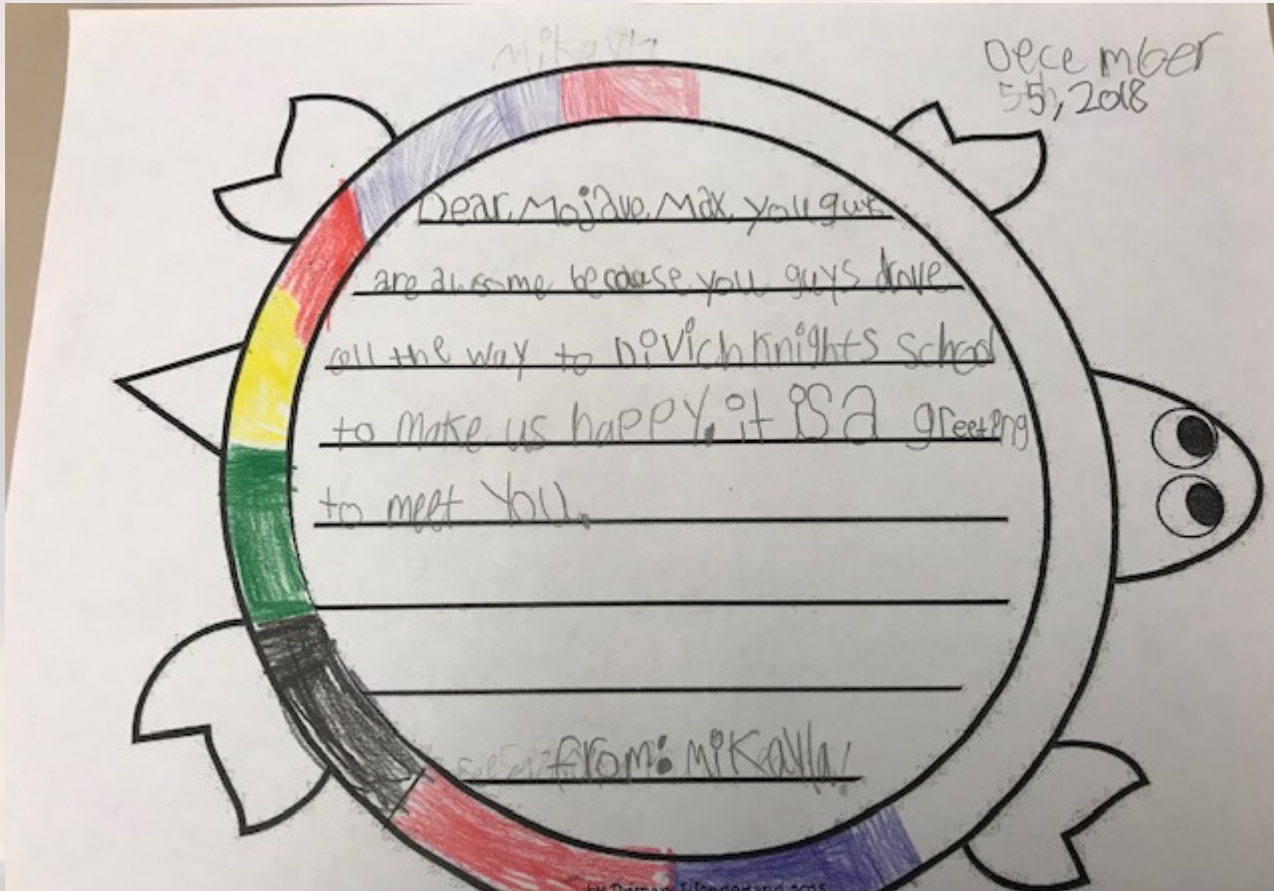 Mikayla
December
5th, 2018
Dear, Mojave, Max, you guys
are awsome, because you guys drove
all the way to Divich Knights School
to make us happy. it is a greeting
to meet You.
from: MiKaylla!